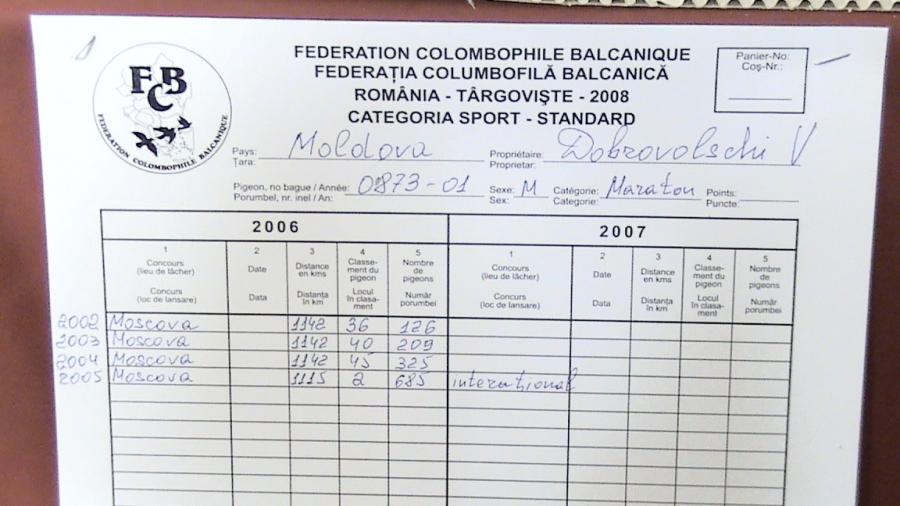 FEDERATION COLOMBOPHILE BALCANIQUE
FEDERAȚIA COLUMBOFILĂ BALCANICĂ
ROMÂNIA - TÂRGOVIŞTE - 2008
CATEGORIA SPORT - STANDARD
Panier-No:
Coş-Nr.:
FCB
FEDERATION COLOMBOPHILE BALCANIQUE
Pays: Moldova Propriétaire: Dobrovolschi V
Țara: Proprietar:
Pigeon, no bague / Année: 0873-01 Sexe: M Catégorie: Maraton Points:
Porumbel, nr. inel / An: Sex: Categorie: Puncte:
2006 2007
1 2 3 4 5 1 2 3 4 5
Concours (lieu de lâcher) Date Distance en kms Classement du pigeon Nombre de pigeons Concours (lieu de lâcher) Date Distance en kms Classement du pigeon Nombre de pigeons
Concurs (loc de lansare) Data Distanța în km Locul în clasament Număr porumbei Concurs (loc de lansare) Data Distanța în km Locul în clasament Număr porumbei
2002 Moscova 1142 36 126
2003 Moscova 1142 40 209
2004 Moscova 1142 45 325
2005 Moscova 1115 2 685 interațional